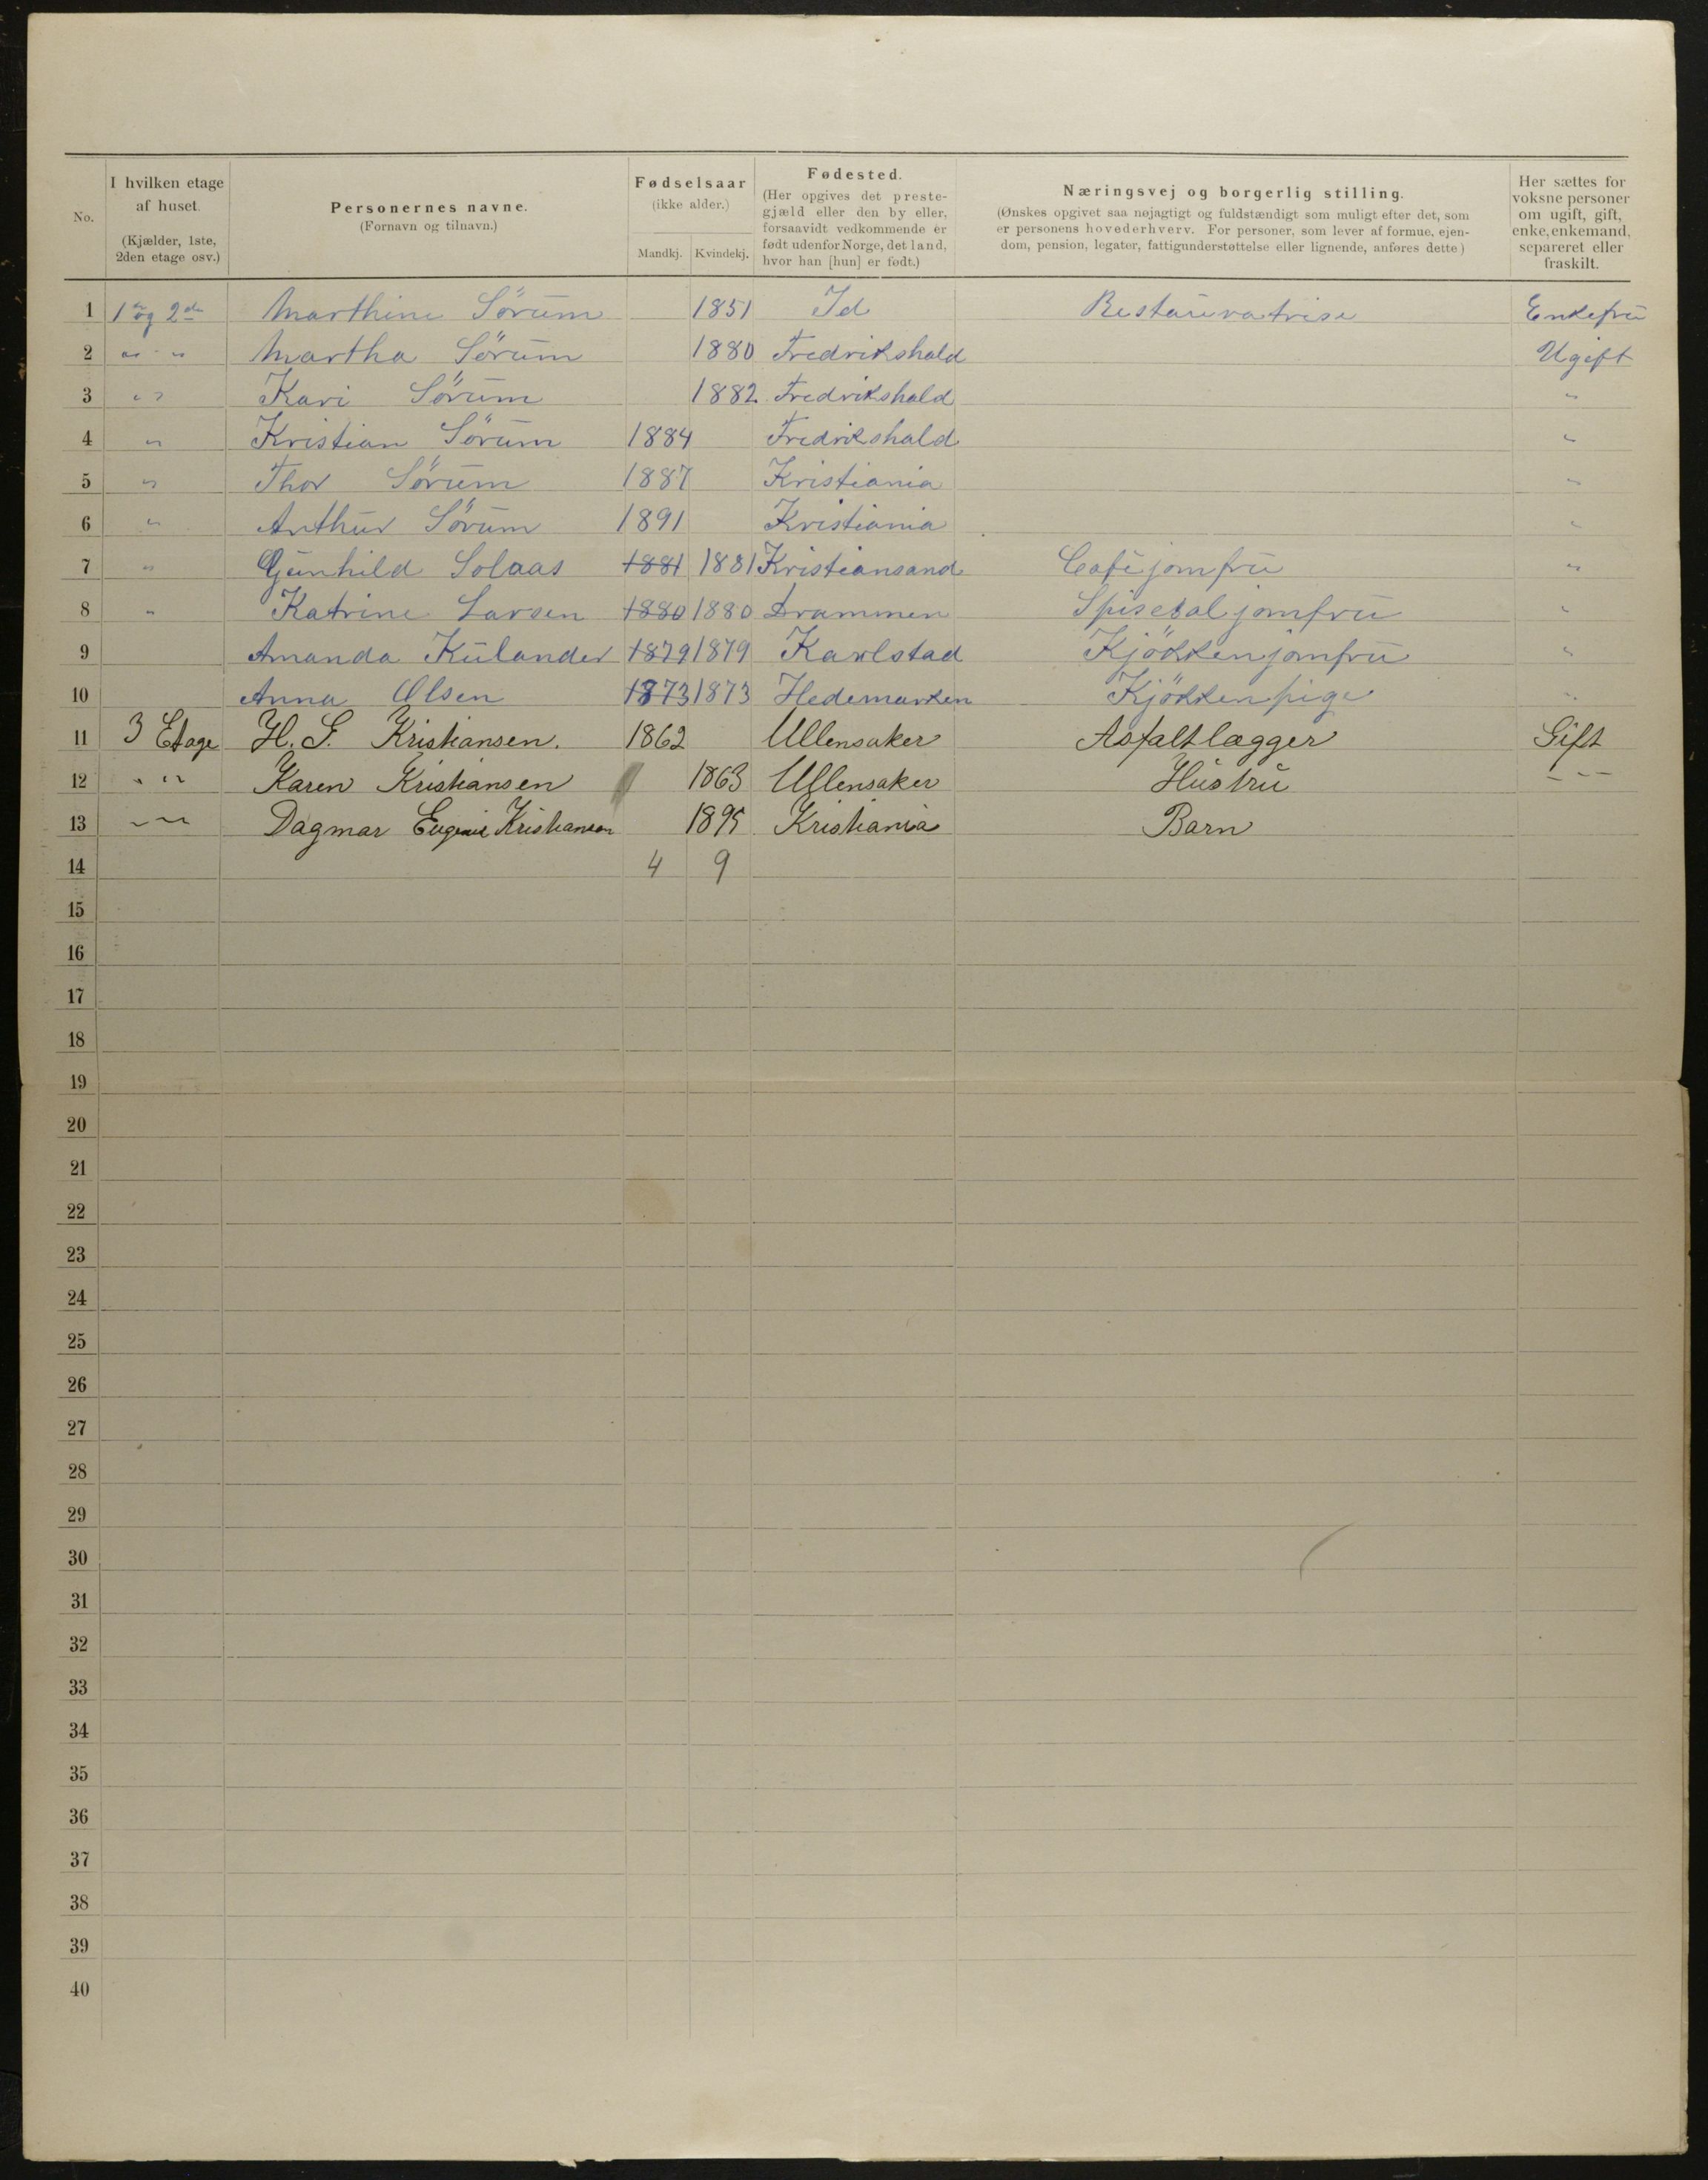 No. | I hvilken etage af huset. (Kjælder, 1ste, 2den etage osv.) | Personernes navne. (Fornavn og tilnavn.) | Fødselsaar (ikke alder.) Mandkj. | Kvindekj. | Fødested. (Her opgives det prestegjæld eller den by eller, forsaavidt vedkommende er født udenfor Norge, det land, hvor han [hun] er født.) | Næringsvej og borgerlig stilling. (Ønskes opgivet saa nøjagtigt og fuldstændigt som muligt efter det, som er personens hovederhverv. For personer, som lever af formue, ejendom, pension, legater, fattigunderstøttelse eller lignende, anføres dette) | Her sættes for voksne personer om ugift, gift, enke, enkemand, separeret eller fraskilt.
1 | 1 og 2de | Marthine Sörum | | 1851 | Id | Restauratrise | Enkefru
2 | " " | Martha Sörum | | 1880 | Fredrikshald | | Ugift
3 | " | Kari Sörum | | 1882 | Fredrikshald | | "
4 | " | Kristian Sörum | 1884 | | Fredrikshald | | "
5 | " | Thor Sörum | 1887 | | Kristiania | | "
6 | " | Arthur Sörum | 1891 | | Kristiania | | "
7 | " | Gunhild Solaas | 1881 | 1881 | Kristiansand | Cafejomfru | "
8 | " | Katrine Larsen | 1880 | 1880 | Drammen | Spisesaljomfru | "
9 | | Amanda Kulander | 1879 | 1879 | Karlstad | Kjökkenjomfru | "
10 | | Anna Olsen | 1873 | 1873 | Hedemarken | Kjökkenpige | "
11 | 3 Etage | H. S. Kristiansen. | 1862 | | Ullensaker | Asfaltlægger | Gift
12 | " " | Karen Kristiansen | | 1863 | Ullensaker | Hustru | " "
13 | " " | Dagmar Eugenie Kristiansen | | 1895 | Kristiania | Barn
14 | | | 4 | 9
15
16
17
18
19
20
21
22
23
24
25
26
27
28
29
30
31
32
33
34
35
36
37
38
39
40